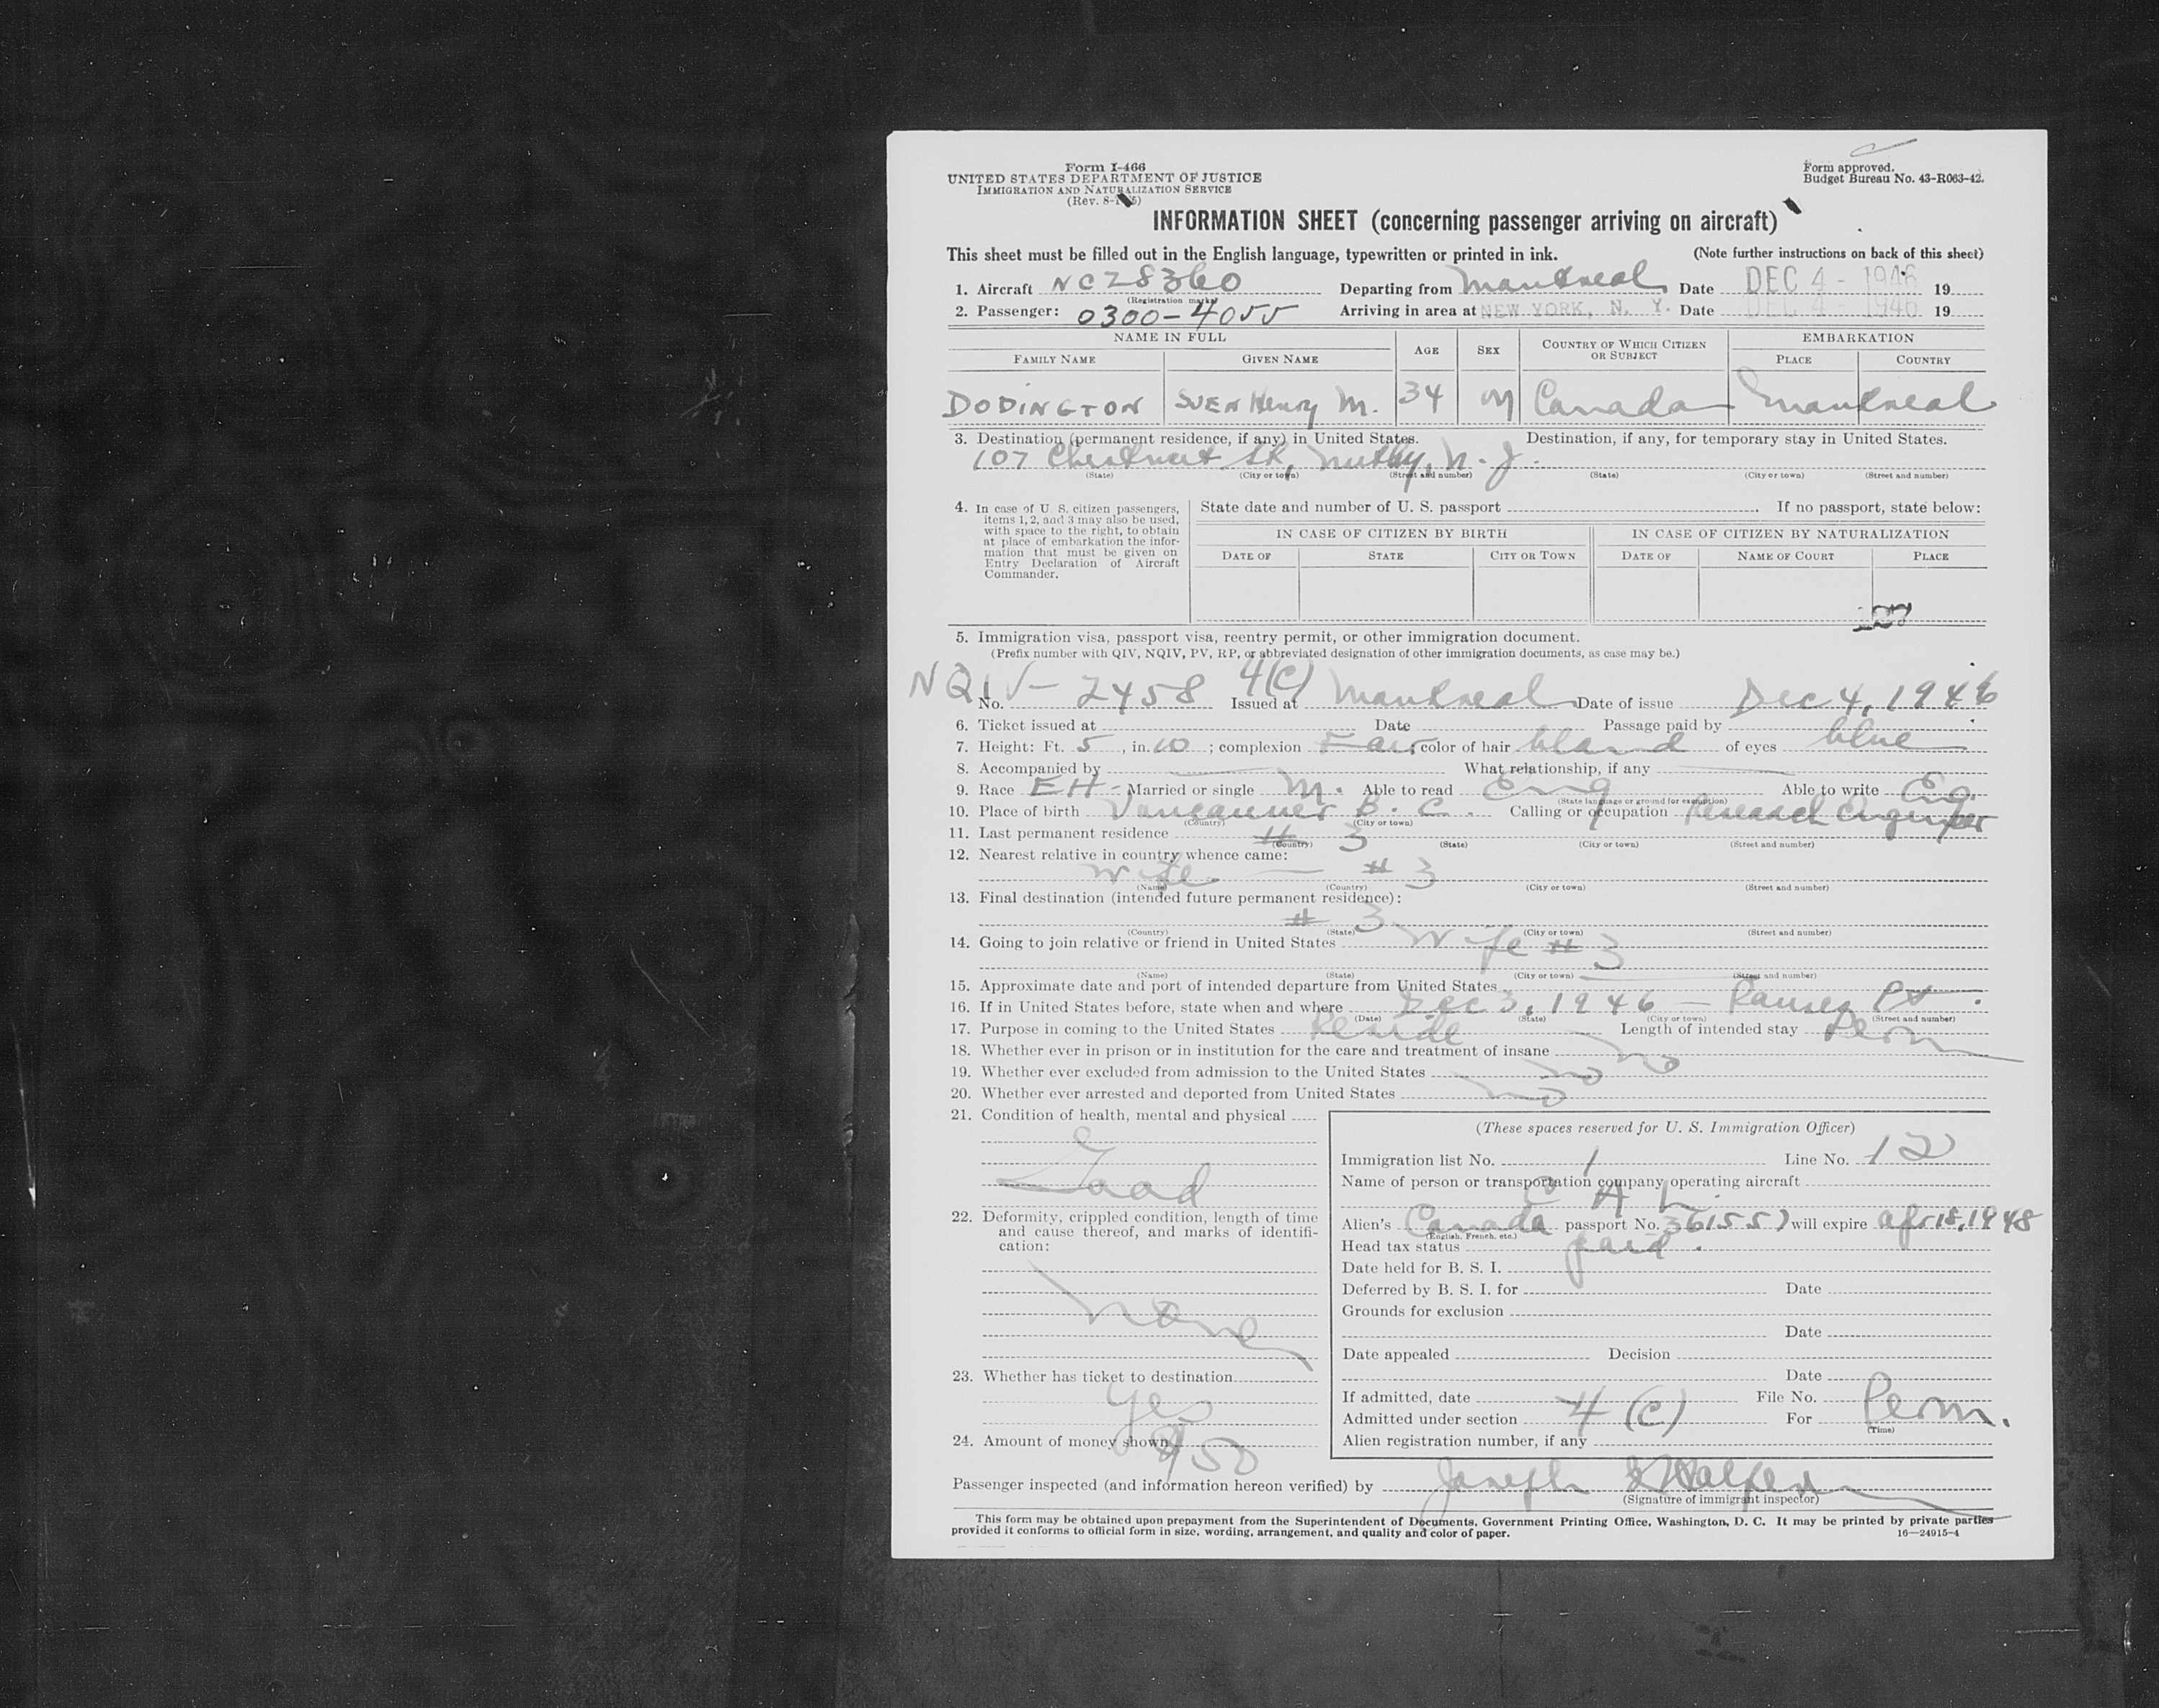 Form I-466
UNITED STATES DEPARTMENT OF JUSTICE
IMMIGRATION AND NATURALIZATION SERVICE
(Rev. 8- 5)
Form approved.
Budget Bureau No. 43-R063-42.
INFORMATION SHEET (concerning passenger arriving on aircraft)
This sheet must be filled out in the English language, typewritten or printed in ink. (Note further instructions on back of this sheet)
1. Aircraft NC28360 Departing from Montreal Date DEC 4 - 1946 19
(Registration marks)
2. Passenger: 0300-4055 Arriving in area at NEW YORK, N. Y. Date DEC 4 - 1946 19
NAME IN FULL AGE SEX COUNTRY OF WHICH CITIZEN OR SUBJECT EMBARKATION
FAMILY NAME GIVEN NAME PLACE COUNTRY
DODINGTON SVEN Henry M. 34 M Canada Montreal
3. Destination (permanent residence, if any) in United States. Destination, if any, for temporary stay in United States.
107 Chestnut St, Nutley, N. J.
(State) (City or town) (Street and number) (State) (City or town) (Street and number)
4. In case of U. S. citizen passengers, items 1, 2, and 3 may also be used, with space to the right, to obtain at place of embarkation the information that must be given on Entry Declaration of Aircraft Commander.
State date and number of U. S. passport If no passport, state below:
IN CASE OF CITIZEN BY BIRTH IN CASE OF CITIZEN BY NATURALIZATION
DATE OF STATE CITY OR TOWN DATE OF NAME OF COURT PLACE
5. Immigration visa, passport visa, reentry permit, or other immigration document.
(Prefix number with QIV, NQIV, PV, RP, or abbreviated designation of other immigration documents, as case may be.)
NQIV- No. 2458 4(c) Issued at Montreal Date of issue Dec 4, 1946
6. Ticket issued at Date Passage paid by
7. Height: Ft. 5, in. 10; complexion Fair color of hair blond of eyes blue
8. Accompanied by What relationship, if any
9. Race EH- Married or single M. Able to read Eng Able to write Eng.
(State language or ground for exemption)
10. Place of birth Vancouver B. C. Calling or occupation Research Engineer
(Country) (City or town)
11. Last permanent residence # 3
(Country) (State) (City or town) (Street and number)
12. Nearest relative in country whence came:
Wife — # 3
(Name) (Country) (City or town) (Street and number)
13. Final destination (intended future permanent residence):
# 3
(Country) (State) (City or town) (Street and number)
14. Going to join relative or friend in United States Wife # 3
(Name) (State) (City or town) (Street and number)
15. Approximate date and port of intended departure from United States
16. If in United States before, state when and where Dec 3, 1946 — Rouses Pt.
(Date) (State) (City or town) (Street and number)
17. Purpose in coming to the United States Reside Length of intended stay Perm
18. Whether ever in prison or in institution for the care and treatment of insane no
19. Whether ever excluded from admission to the United States no
20. Whether ever arrested and deported from United States no
21. Condition of health, mental and physical
Good
22. Deformity, crippled condition, length of time and cause thereof, and marks of identification:
None
23. Whether has ticket to destination
Yes
24. Amount of money shown $50
(These spaces reserved for U. S. Immigration Officer)
Immigration list No. 1 Line No. 12
Name of person or transportation company operating aircraft
C A L.
Alien's Canada passport No. 361557 will expire Apr 18, 1948
(English, French, etc.)
Head tax status paid.
Date held for B. S. I.
Deferred by B. S. I. for Date
Grounds for exclusion
Date
Date appealed Decision
Date
If admitted, date File No.
Admitted under section 4 (c) For Perm.
(Time)
Alien registration number, if any
Passenger inspected (and information hereon verified) by Joseph Halpern
(Signature of immigrant inspector)
This form may be obtained upon prepayment from the Superintendent of Documents, Government Printing Office, Washington, D. C. It may be printed by private parties
provided it conforms to official form in size, wording, arrangement, and quality and color of paper. 16—24915-4